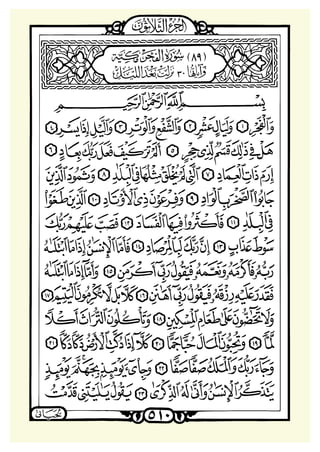 الجزء الثلاثون
(٨٩) سُورَةِ الفَجْرِ مَكِّيَّة
وَآيَاتُهَا ٣٠ نَزَلَتْ بَعْدَ اللَّيْل
بِسْمِ اللَّهِ الرَّحْمَٰنِ الرَّحِيمِ
وَالْفَجْرِ ١ وَلَيَالٍ عَشْرٍ ٢ وَالشَّفْعِ وَالْوَتْرِ ٣ وَاللَّيْلِ إِذَا يَسْرِ ٤
هَلْ فِي ذَٰلِكَ قَسَمٌ لِذِي حِجْرٍ ٥ أَلَمْ تَرَ كَيْفَ فَعَلَ رَبُّكَ بِعَادٍ ٦
إِرَمَ ذَاتِ الْعِمَادِ ٧ الَّتِي لَمْ يُخْلَقْ مِثْلُهَا فِي الْبِلَٰدِ ٨ وَثَمُودَ الَّذِينَ
جَابُوا الصَّخْرَ بِالْوَادِ ٩ وَفِرْعَوْنَ ذِي الْأَوْتَادِ ١٠ الَّذِينَ طَغَوْا
فِي الْبِلَٰدِ ١١ فَأَكْثَرُوا فِيهَا الْفَسَادَ ١٢ فَصَبَّ عَلَيْهِمْ رَبُّكَ
سَوْطَ عَذَابٍ ١٣ إِنَّ رَبَّكَ لَبِالْمِرْصَادِ ١٤ فَأَمَّا الْإِنْسَٰنُ إِذَا مَا ابْتَلَٰهُ
رَبُّهُ فَأَكْرَمَهُ وَنَعَّمَهُ فَيَقُولُ رَبِّي أَكْرَمَنِ ١٥ وَأَمَّا إِذَا مَا ابْتَلَٰهُ
فَقَدَرَ عَلَيْهِ رِزْقَهُ فَيَقُولُ رَبِّي أَهَٰنَنِ ١٦ كَلَّا بَلْ لَا تُكْرِمُونَ الْيَتِيمَ ١٧
وَلَا تَحَٰضُّونَ عَلَىٰ طَعَامِ الْمِسْكِينِ ١٨ وَتَأْكُلُونَ التُّرَاثَ أَكْلًا
لَمًّا ١٩ وَتُحِبُّونَ الْمَالَ حُبًّا جَمًّا ٢٠ كَلَّا إِذَا دُكَّتِ الْأَرْضُ دَكًّا دَكًّا ٢١
وَجَاءَ رَبُّكَ وَالْمَلَكُ صَفًّا صَفًّا ٢٢ وَجِايءَ يَوْمَئِذٍ بِجَهَنَّمَ يَوْمَئِذٍ
يَتَذَكَّرُ الْإِنْسَٰنُ وَأَنَّىٰ لَهُ الذِّكْرَىٰ ٢٣ يَقُولُ يَٰلَيْتَنِي قَدَّمْتُ
٥١٠